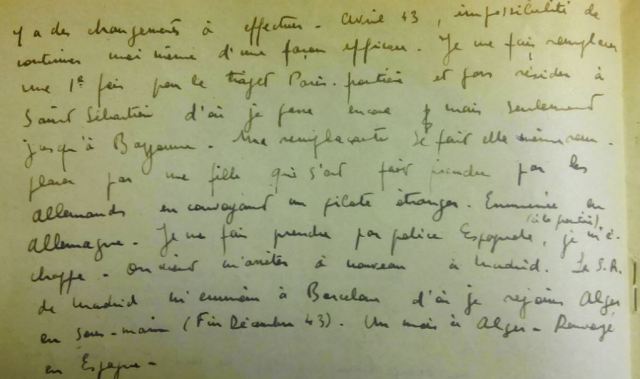 y a des changements à effectuer - Avril 43, impossibilité de
continuer moi même d'une façon efficace. Je me fais remplacer
une 1e fois pour le trajet Paris-frontière et pars résider à
Saint Sébastien d'où je passe encore mais seulement
jusqu'à Bayonne - Ma remplaçante se fait elle même rem-
placer par une fille qui s'est fait prendre par les
allemands en convoyant un pilote étranger. Emmenée en
Allemagne. Je me fais prendre par police Espagnole, je m'é-
(à la frontière)
chappe - On vient m'arrêter à nouveau à Madrid. Le S.R.
de Madrid m'emmène à Barcelone d'où je rejoins Alger
en sous-marin (Fin Décembre 43). Un mois à Alger - Renvoyé
en Espagne -